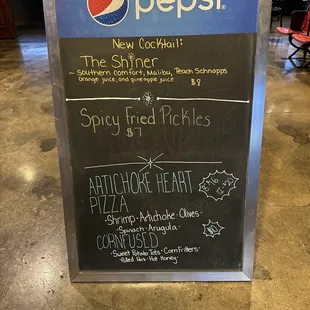 pepsi
New Cocktail:
The Shiner
~ Southern Comfort, Malibu, Peach Schnapps
Orange juice, and pineapple juice $8
Spicy Fried Pickles
$7
ARTICHOKE HEART
PIZZA
·Shrimp·Artichoke·Olives·
·Spinach·Arugula·
CORNFUSED
·Sweet Potato Tots·Corn Fritters·
·Pulled Pork·Hot Honey·